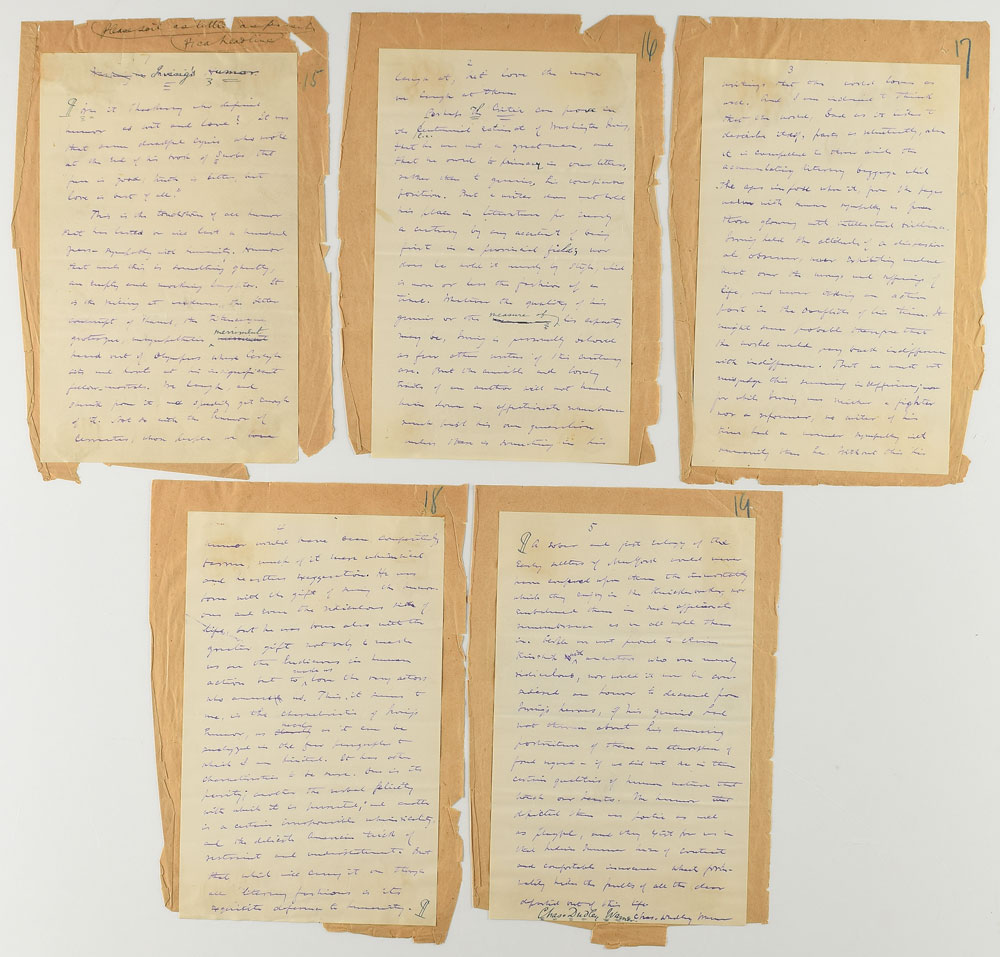 Please don't
as a headline
15
Irving's Humor
3
Was it Thackeray who defined
humor as wit and love? It was
that same dreadful cynic who wrote
at the end of his book of Snobs that
"fun is good; truth is better and
love is best of all."
This is the touchstone of all humor
that has lasted or will last a hundred
years sympathy with humanity. Humor
that lacks this is something ghastly,
an empty and mocking thing too. It
is the of weakness, the bitter
contempt of the
grotesque, unsympathetic merriment
heard out of Olympus where
sits and hoots at his insignificant
fellow mortals. We laugh and
it and speedily get enough
of it. Not so with the humor of
Cervantes, whose people we love
16
2
laugh at, but love the more
we laugh at them.
Perhaps the Critic can prove in
the Centennial estimate of Washington Irving,
that he was not a great man, and
that he owed to primacy in our letters,
rather than to genius, his conspicuous
position. But a writer does not hold
his place in literature for nearly
a century by any accident of being
first in a provincial field; nor
does he hold it merely by style, which
is more or less the fashion of a
time. Whatever the quality of his
genius or the measure of his capacity
may be, Irving is personally beloved
as few other writers of this century
are. But the amiable and lovely
traits of an author will not hand
him down in affectionate remembrance
much past his own generation
unless there is something in his
17
3
writings that the world loves as
well. And I am inclined to think
that the world, bad as it likes to
describe itself, parts as reluctantly, when
it is compelled to throw aside the
accumulating literary baggage which
the ages impose upon it, from the pages
warm with human sympathy as from
those glowing with intellectual brilliance.
Irving held the attitude of a dispassion-
ate observer, never excitedly
over the wrongs and suffering of
life, and never taking an active
part in the conflicts of his time. It
might seem probable therefore that
the world would pay back indifference
with indifference. But we must not
misjudge this seeming indifference;
for while Irving was neither a fighter
nor a reformer, no writer of his
time had a warmer sympathy with
humanity than he. Without this his
18
4
humor would have been comparatively
barren, much of it mere whimsical
and heartless exaggeration. He was
born with the gift of seeing the humor-
ous and even the ridiculous side of
life, but he was born also with the
greater gift not only to make
us see the ludicrous in human
action but to make us love the very actors
who amused us. This, it seems to
me, is the characteristic of Irving's
humor, as nearly as it can be
analyzed in the few paragraphs to
which I am limited. It has other
characteristics to be sure. One is its
purity; another the verbal felicity
with which it is presented; and another
is a certain irresponsible whimsicality
and the delicate American trick of
restraint and understatement. But
that which will carry it on through
all literary fashions is its
exquisite deference to humanity.
19
5
A sober and just eulogy of the
early settlers of would never
have conferred upon them the immortality
which they enjoy in the Knickerbocker, nor
embalmed them in such affectionate
remembrance as we all hold them
in. People are not proud to claim
kinship with ancestors who are merely
ridiculous, nor would it ever be con-
sidered an honor to descend from
Irving's heroes, if his genius had
not thrown about his amusing
portraiture of them an atmosphere of
fond regard - if we did not see in them
certain qualities of human nature that
touch our hearts. The humor that
depicted them was poetic as well
as playful, and they wait for us in
their Indian Summer haze of content
and comfortable innocence which
makes the of all the dear
departed out of this life
Chas. Dudley Warner Chas. Dudley Warner